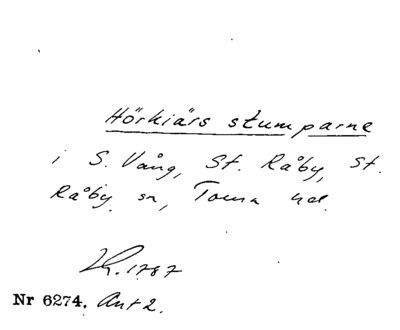 Hörkiärs stumparne
i S. Vång, St. Råby, St.
Råby sn, Torna hd.
1787
Nr 6274. Akt 2.